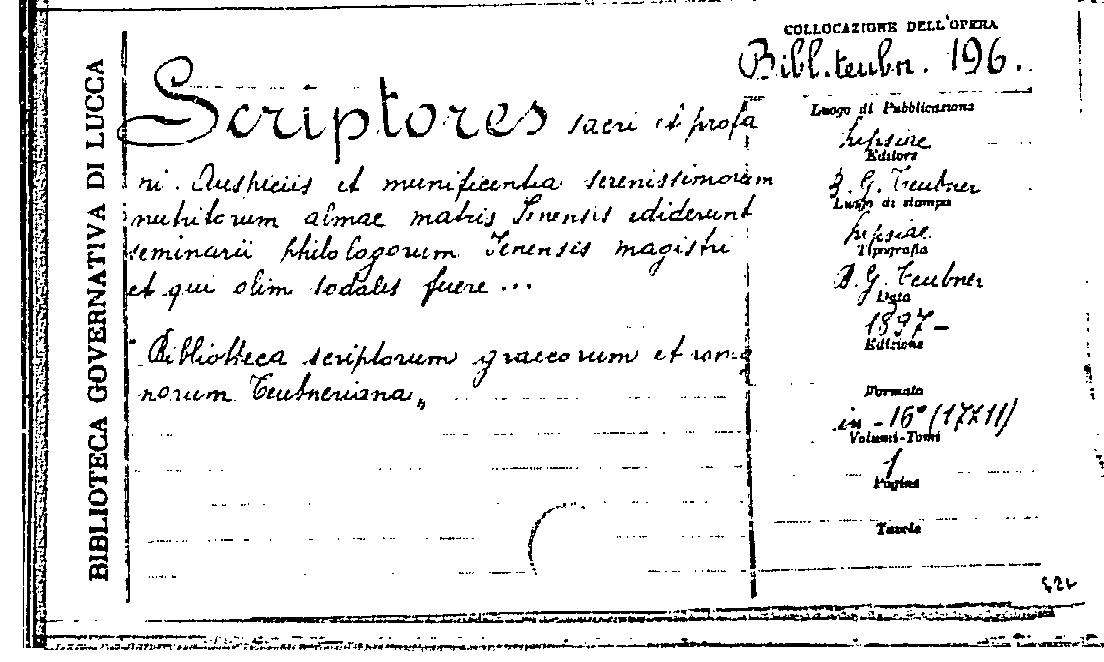 BIBLIOTECA GOVERNATIVA DI LUCCA
COLLOCAZIONE DELL'OPERA
Bibl. teubn. 196.
Scriptores sacri et profa
ni. Auspiciis et munificentia serenissimorum
nutritorum almae matris Jenensis ediderunt
seminarii philologorum Jenensis magistri
et qui olim sodales fuere ...
Bibliotheca scriptorum graecorum et roma
norum Teubneriana„
Luogo di Pubblicazione
Lipsiae
Editore
B. G. Teubner
Luogo di stampa
Lipsiae
Tipografia
B. G. Teubner
Data
1897-
Edizione
Formato
in-16° (17X11)
Volumi-Tomi
1
Pagine
Tavole